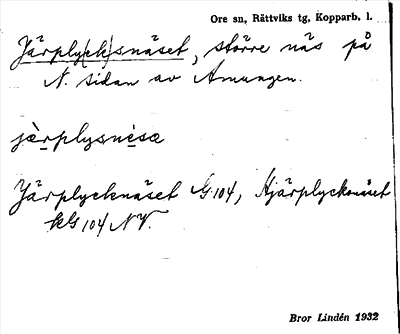 Ore sn, Rättviks tg, Kopparb. l.
Järply(ck)snäset, större näs på
N. sidan av Amungen.
jä̀rplysnèsæ
Järplycknäset G 104, Hjärplycksnäset
kG 104 NV.
Bror Lindén 1932